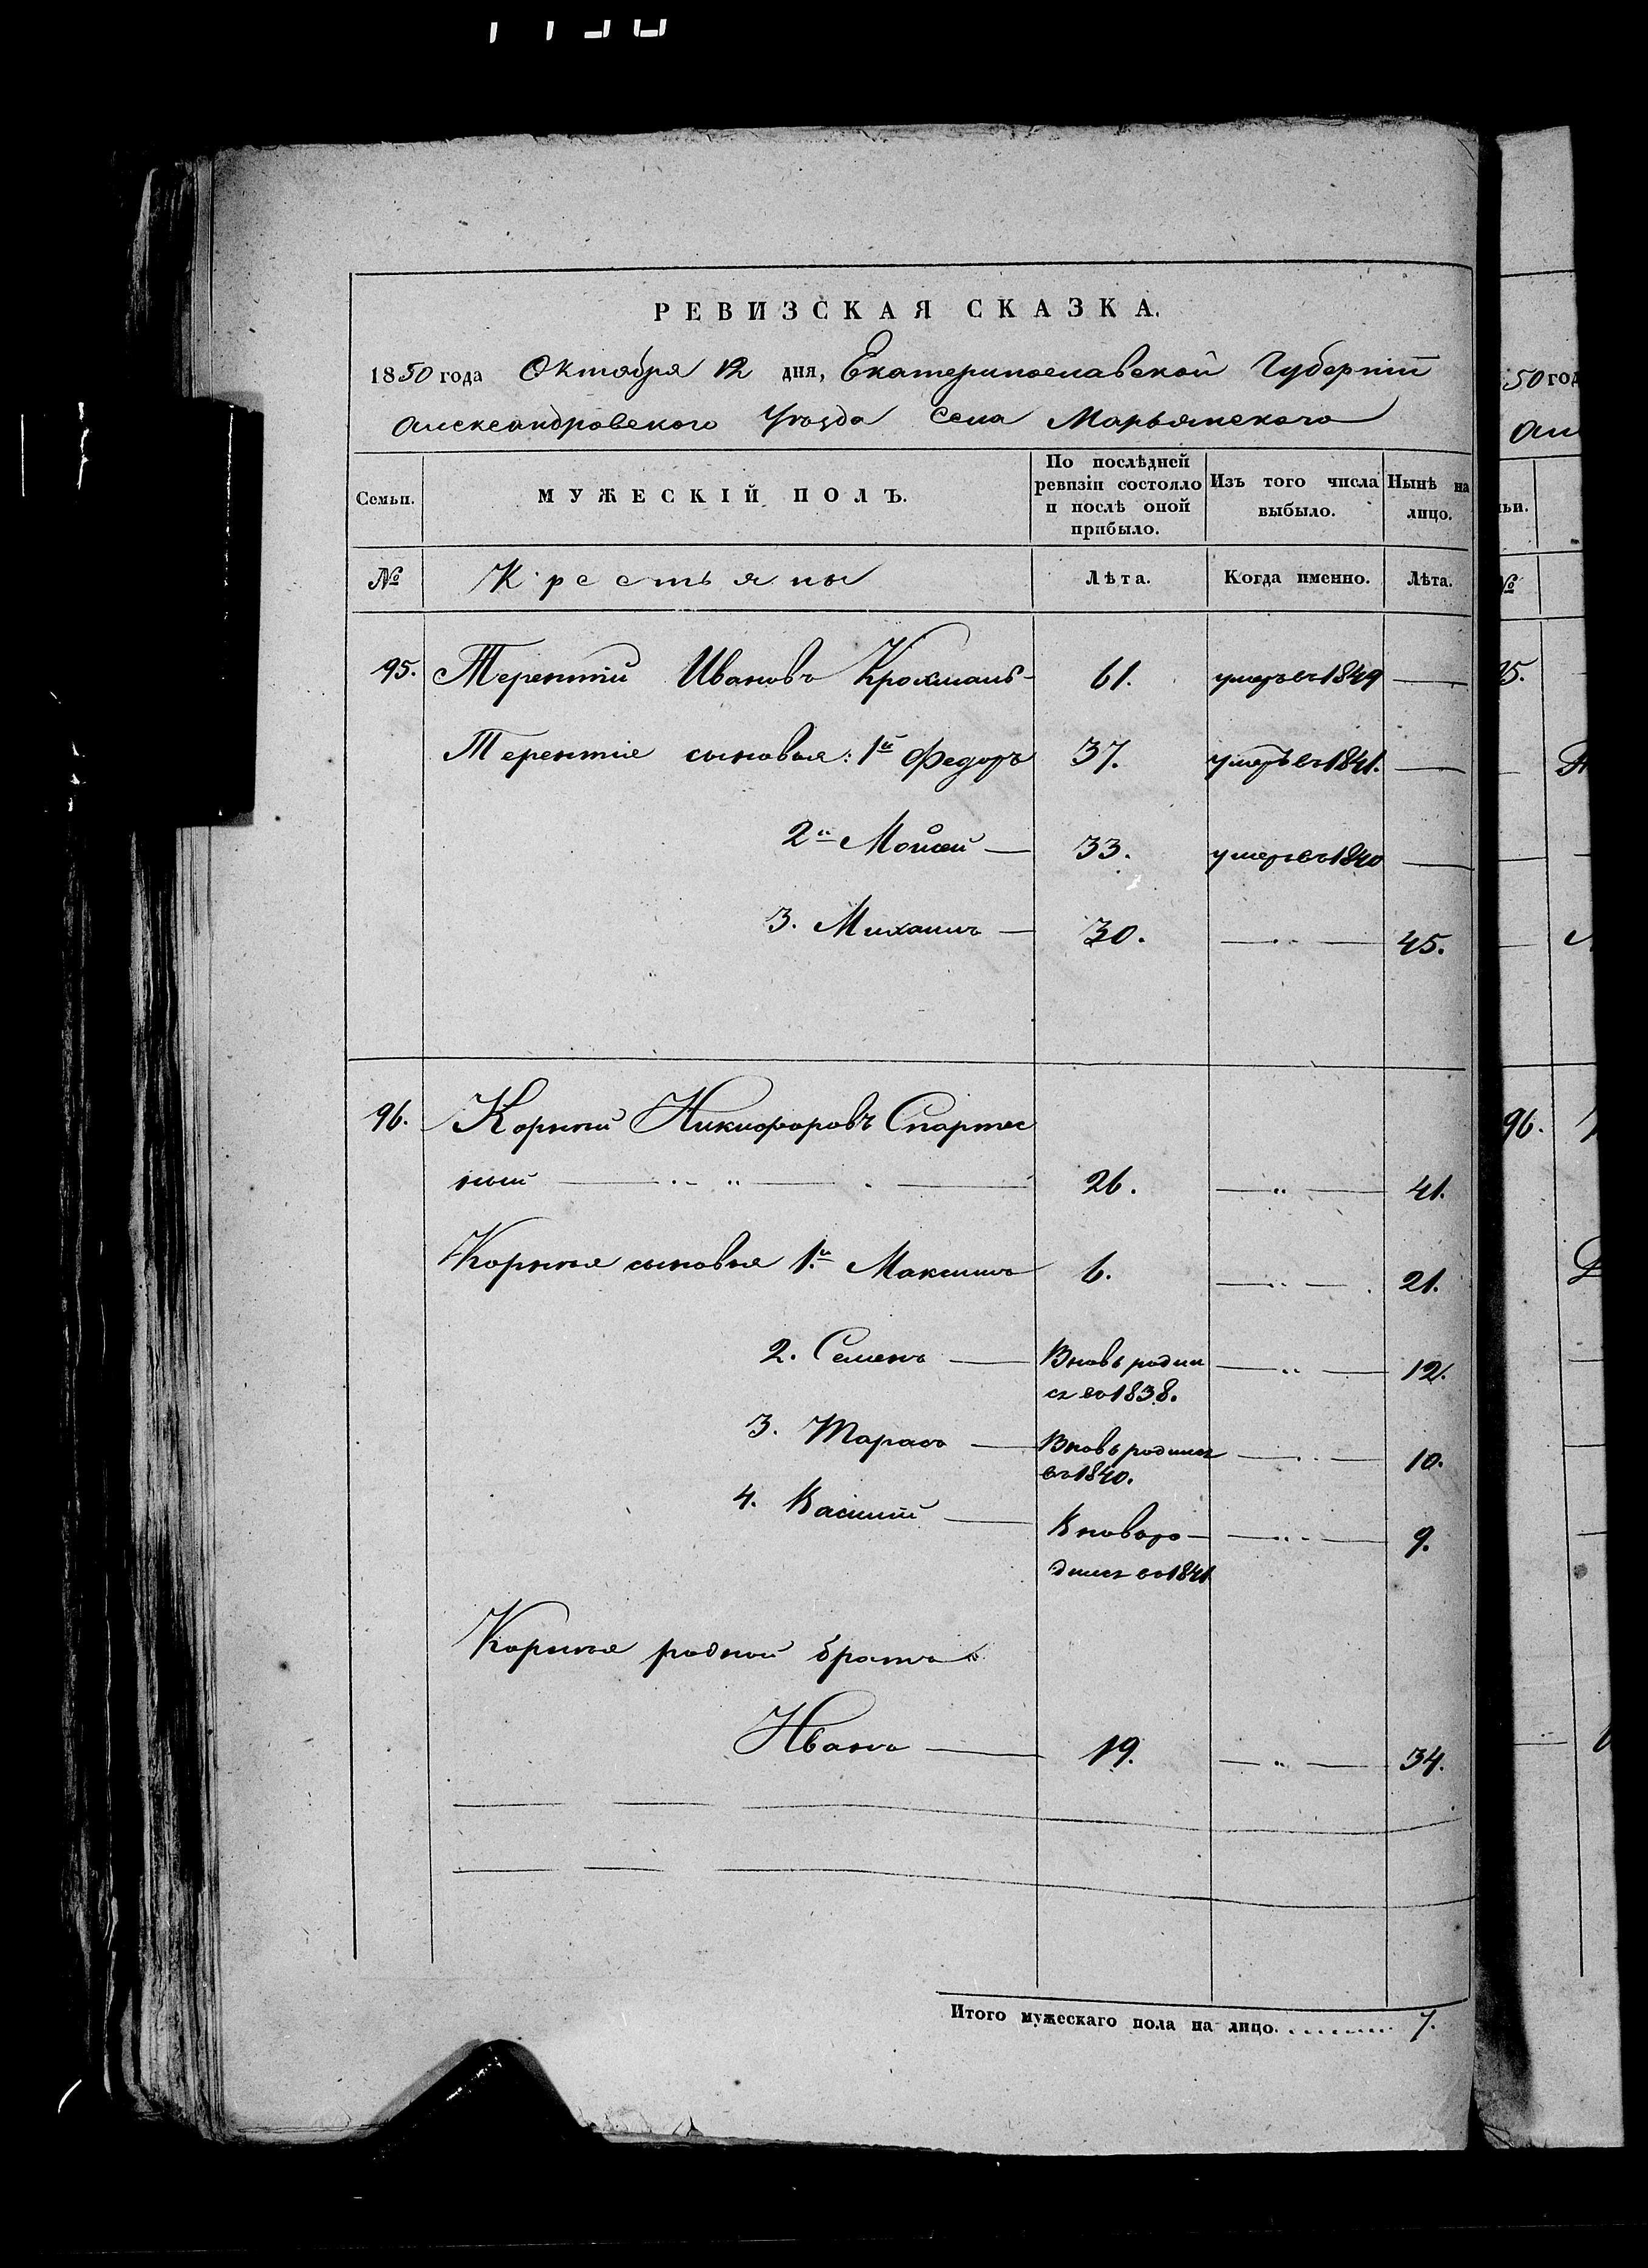 РЕВИЗСКАЯ СКАЗКА.
1850 года Октября 12 дня, Екатеринославской Губерніи
Александровского Уѣзда Села Марьянского
Семьи. МУЖЕСКІЙ ПОЛЪ. По послѣдней ревизіи состояло и послѣ оной прибыло. Изъ того числа выбыло. Нынѣ на лицо.
№ Крестьяны Лѣта. Когда именно. Лѣта.
95. Терентій Ивановъ Крохмаль 61. умеръ въ 1849
Терентія сыновья: 1й Федоръ 37. умеръ въ 1841.
2й Моисей 33. умеръ въ 1840
3. Михаилъ 30. 45.
96. Корнѣй Никифоровъ Спартес
ный 26. 41.
Корнѣя сыновья 1й Максимъ 6. 21.
2. Семенъ Вновь родил 12.
ся въ 1838.
3. Тарасъ Вновь родился 10.
въ 1840.
4. Василій Вновь ро- 9.
дился въ 1841
Корнѣя родной братъ
Иванъ 19. 34.
Итого мужескаго пола на лицо. 7.
50 год
Ал
ьи.
№
95.
96.